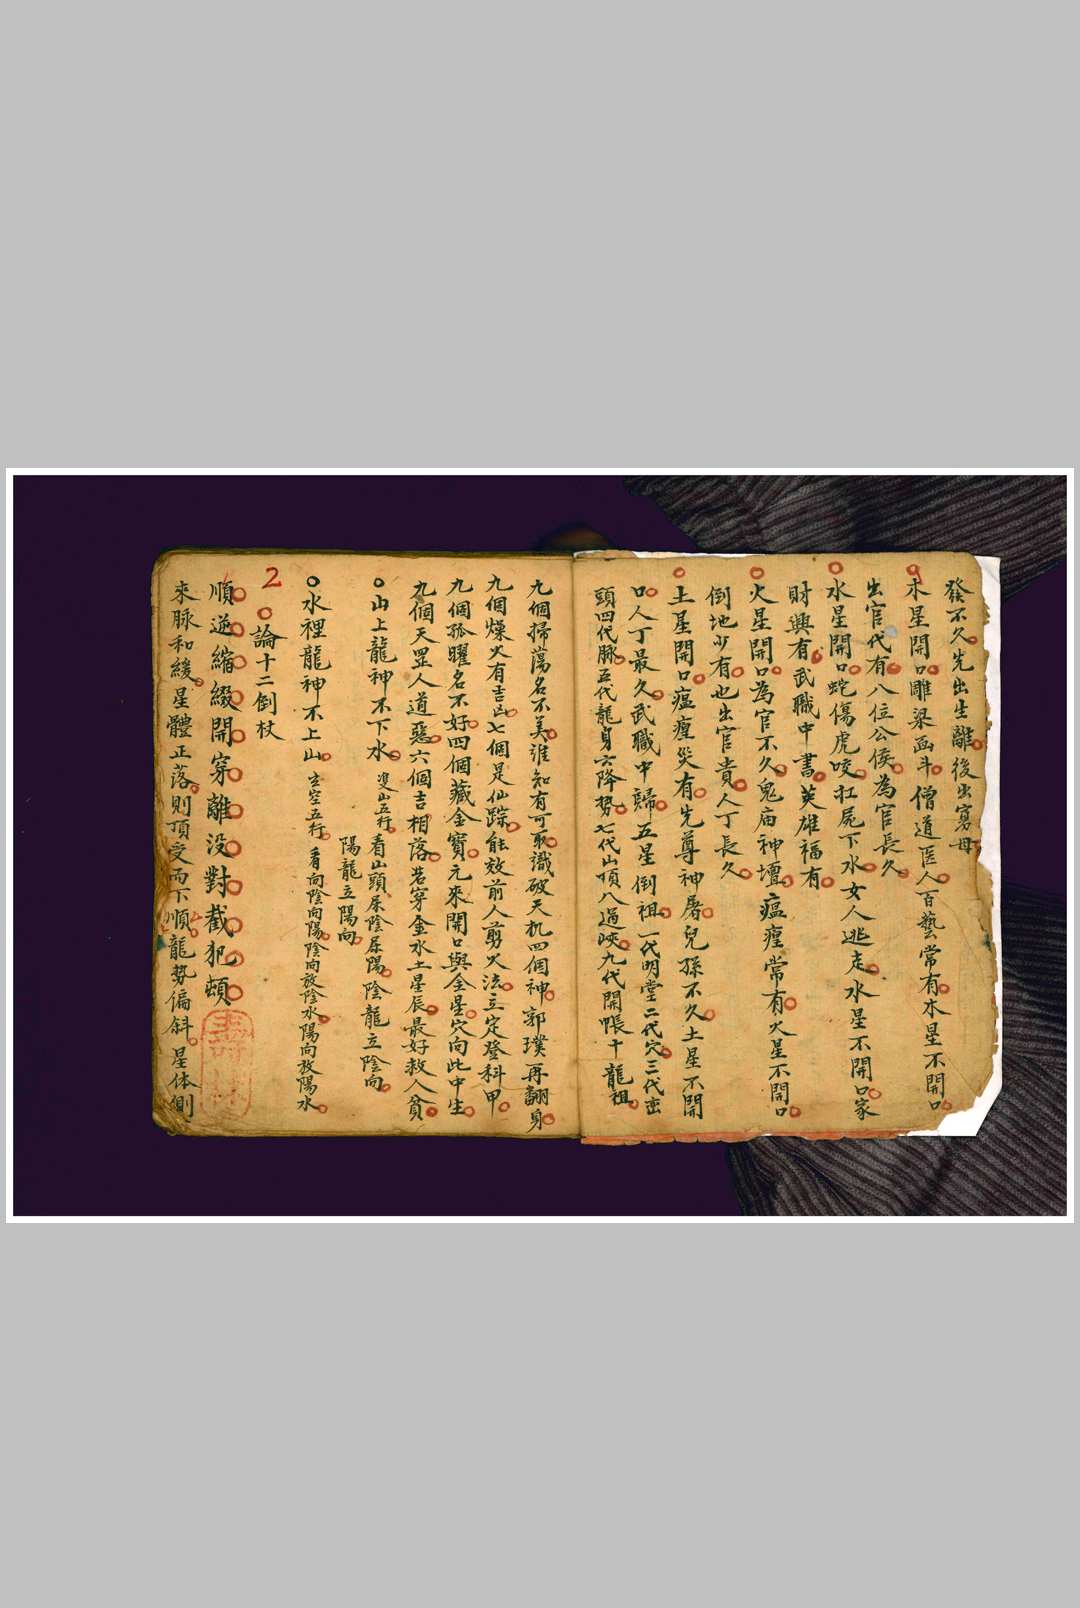 發不久先出生離後出寡母
木星開口雕梁畫斗僧道医人百藝常有木星不開口
出官代有八位公侯為官長久
水星開口蛇傷虎咬扛屍下水女人逃走水星不開口家
財興有武職中書英雄福有
火星開口為官不久鬼庙神壇瘟瘴常有火星不開口
倒地少有也出官貴人丁長久
土星開口瘟瘴災有先尊神屠兒孫不久土星不開
口人丁最久武職中歸五星倒祖一代明堂二代穴三代峦
頭四代脉五代龍身六降勢七代山頂八過峽九代開帳十龍祖
九個掃蕩名不美誰知有可取識破天机四個神郭璞再翻身
九個燥火有吉凶七個是仙蹤能效前人剪火法立定登科甲
九個孤曜名不好四個藏金寶元來開口與金星穴向此中生
九個天罡人道惡六個吉相落若穿金水土星辰最好救人貧
山上龍神不下水 雙山五行看山頭屎陰屎陽陰龍立陰向
陽龍立陽向
水裡龍神不上山 玄空五行看向陰向陽陰向放陰水陽向放陽水
2 論十二倒杖
順逆縮綴開穿離没對截犯頓
来脉和緩星體正落則頂受而下順龍勢偏斜星体側